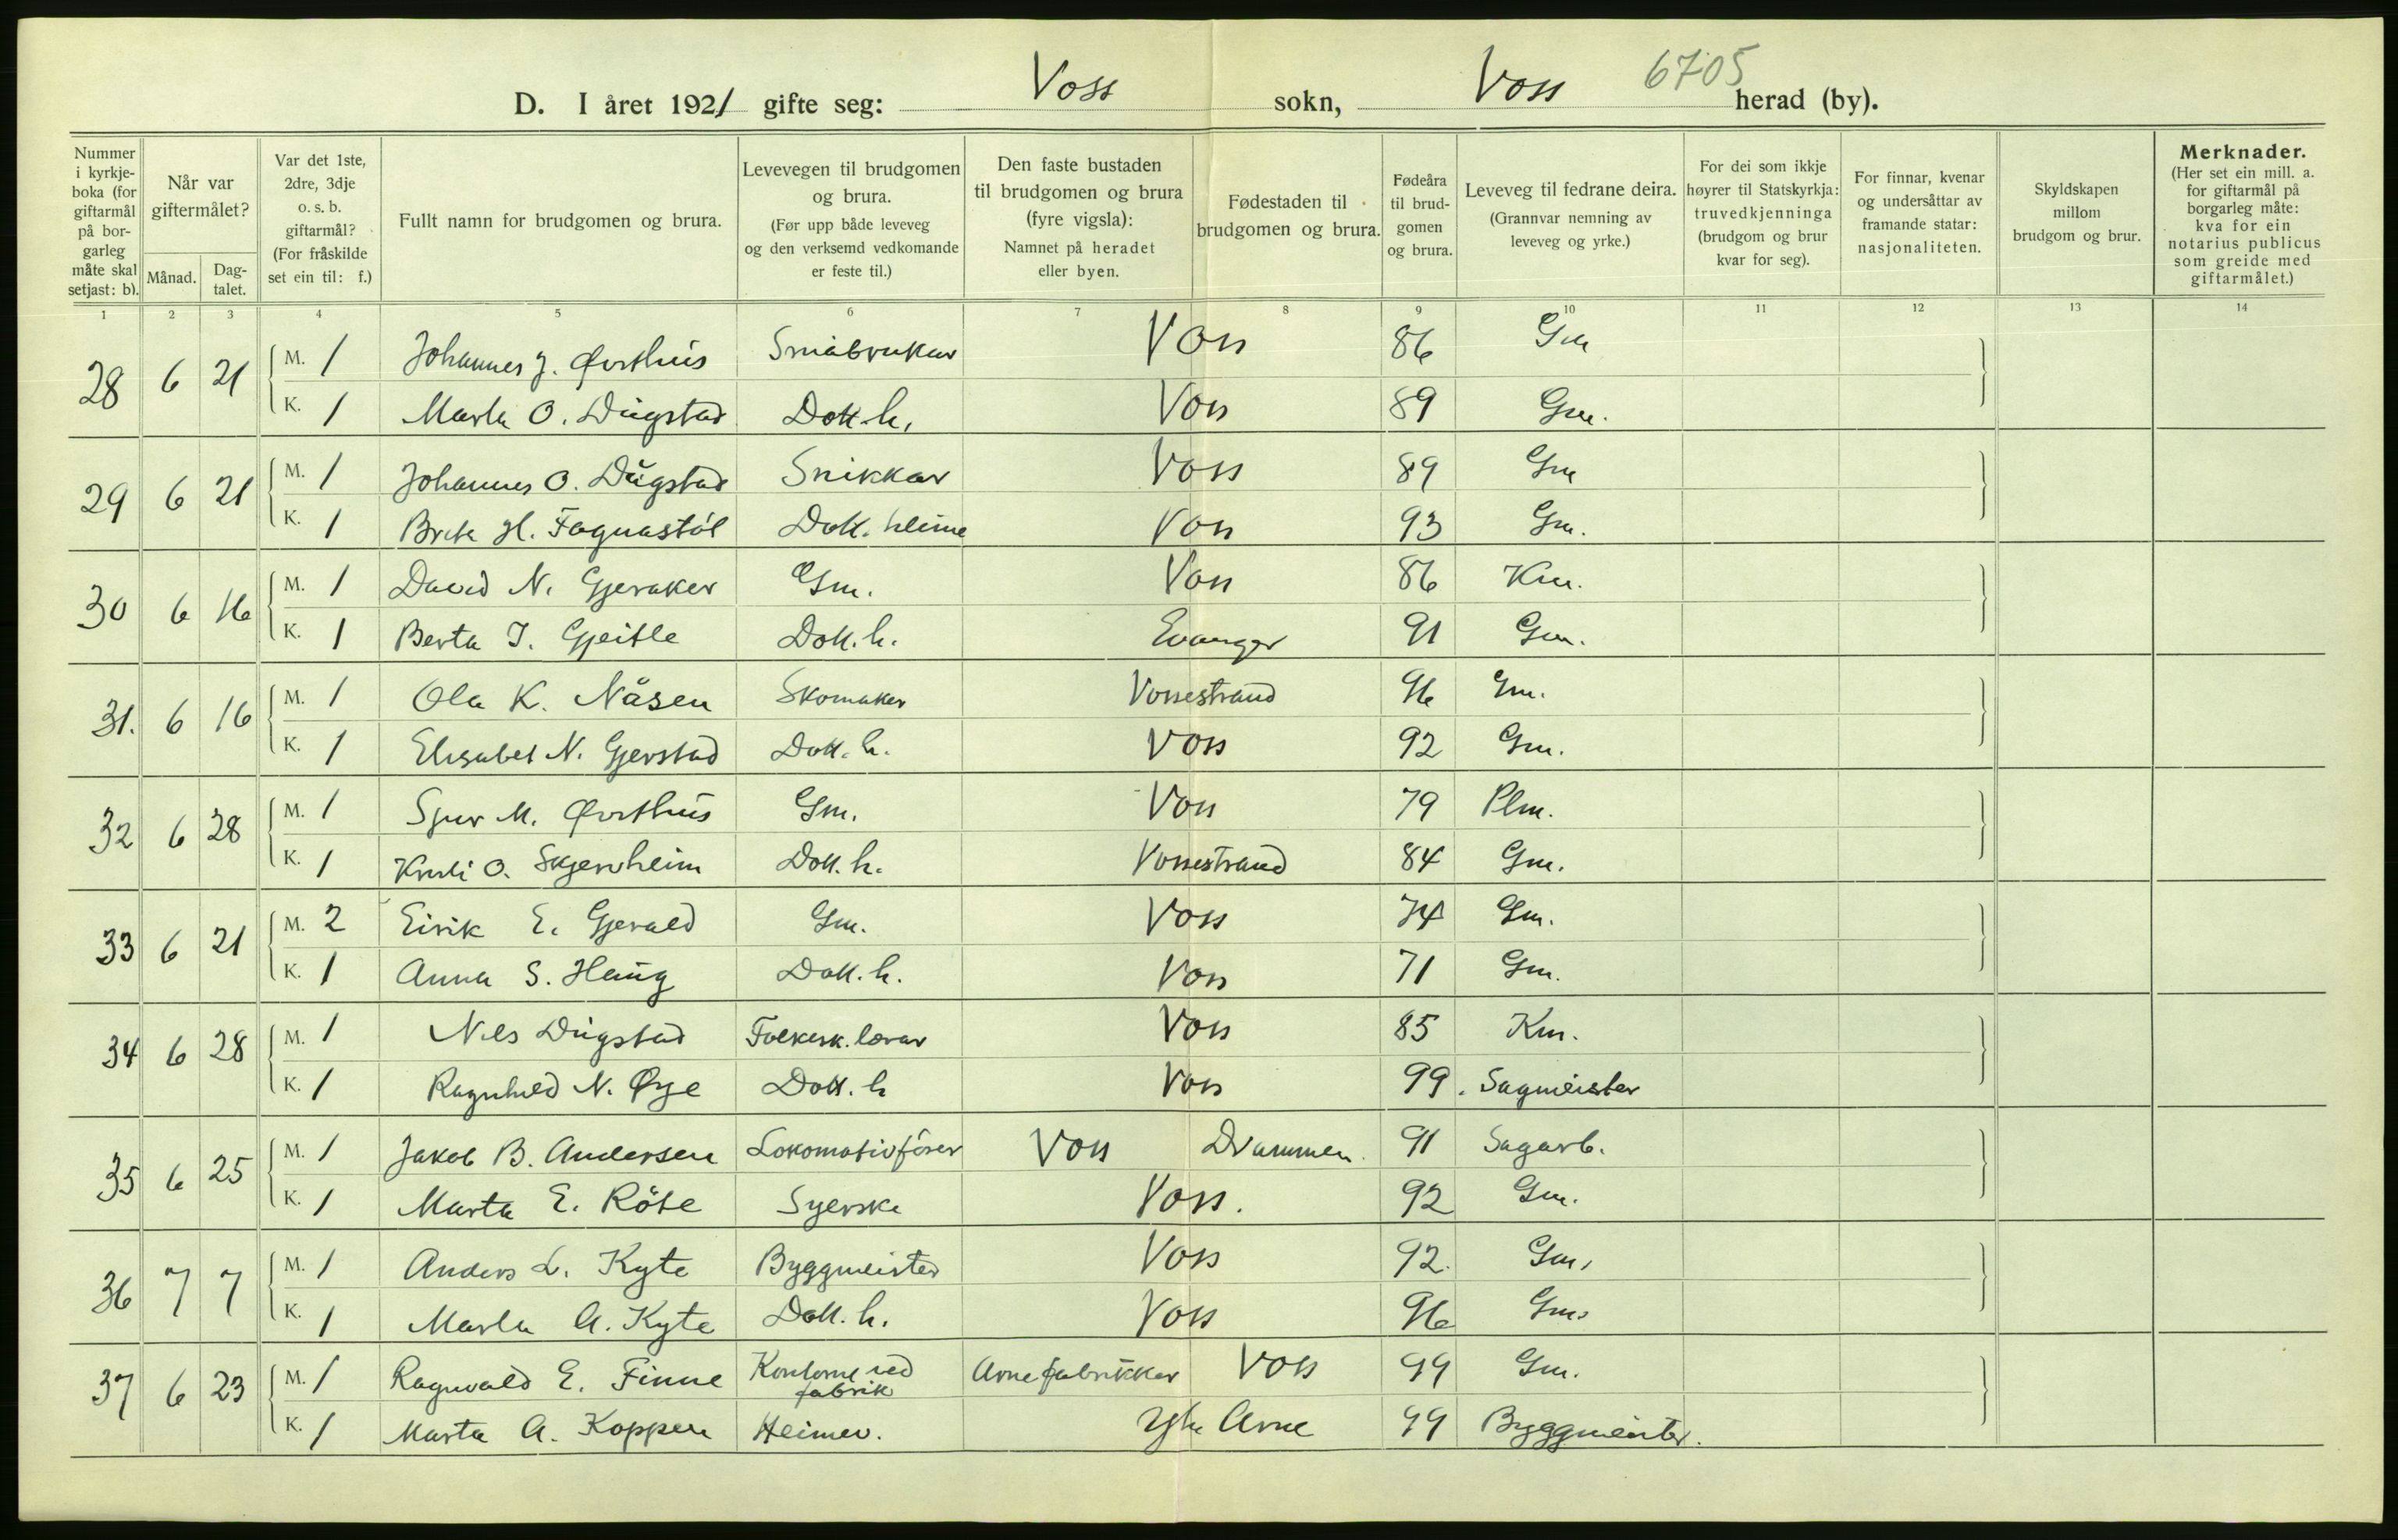 6705
D. I året 1921 gifte seg: Voss sokn, Voss herad (by).
Nummer i kyrkje-boka (for giftarmål på bor-garleg måte skal setjast: b).
Når var giftermålet?
Månad.
Dag-talet.
Var det 1ste, 2dre, 3dje o. s. b. giftarmål? (For fråskilde set ein til: f.)
Fullt namn for brudgomen og brura.
Levevegen til brudgomen og brura. (Før upp både leveveg og den verksemd vedkomande er feste til.)
Den faste bustaden til brudgomen og brura (fyre vigsla): Namnet på heradet eller byen.
Fødestaden til brudgomen og brura.
Fødeåra til brud-gomen og brura.
Leveveg til fedrane deira. (Grannvar nemning av leveveg og yrke.)
For dei som ikkje høyrer til Statskyrkja: truvedkjenninga (brudgom og brur kvar for seg).
For finnar, kvenar og undersåttar av framande statar: nasjonaliteten.
Skyldskapen millom brudgom og brur.
Merknader. (Her set ein mill. a. for giftarmål på borgarleg måte: kva for ein notarius publicus som greide med giftarmålet.)
1 2 3 4 5 6 7 8 9 10 11 12 13 14
28 6 21 M. 1 Johannes J. Øvsthus Småbrukar Voss 86 Gm
K. 1 Marta O. Dugstad Dott. h. Voss 89 Gm.
29 6 21 M. 1 Johannes O. Dugstad Snikkar Voss 89 Gm
K. 1 Brita H. Fagnastøl Dott. heime Voss 93 Gm.
30 6 16 M. 1 David N. Gjeraker Gm. Voss 86 Km.
K. 1 Berta I. Gjeitle Dott. h. Evanger 91 Gm.
31. 6 16 M. 1 Ola K. Nåsen Skomaker Vossestrand 96 Gm.
K. 1 Elisabet N. Gjerstad Dott. h. Voss 92 Gm.
32 6 28 M. 1 Sjur M. Øvsthus Gm. Voss 79 Plm.
K. 1 O. Skjervheim Dott. h. Vossestrand 84 Gm.
33 6 21 M. 2 Eirik E. Gjerald Gm. Voss 74 Gm.
K. 1 Anna S. Haug Dott. h. Voss 71 Gm.
34 6 28 M. 1 Nils Dugstad Folkesk. lærar Voss 85 Km.
K. 1 Ragnhild N. Øye Dott. h Voss 99. Sagmeister
35 6 25 M. 1 Jakob B. Andersen Lokomotivförer Voss Drammen. 91 Sagarb.
K. 1 Marta E. Röte Syerske Voss. 92 Gm.
36 7 7 M. 1 Anders L. Kyte Byggmeister Voss 92. Gm.
K. 1 Marta A. Kyte Dott. h. Voss 96 Gm.
37 6 23 M. 1 Ragnvald E. Finne ved Arne fabrikker Voss 99 Gm.
fabrik
K. 1 Marta A. Koppen Heimev. Ytre Arne 99 Byggmeister.